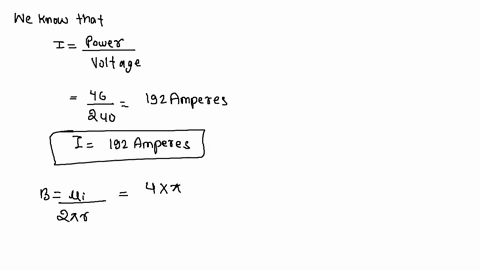 We know that
I = Power / Voltage
= 46 / 240 = 192 Amperes
I = 192 Amperes
B = μi / 2πr = 4 × π